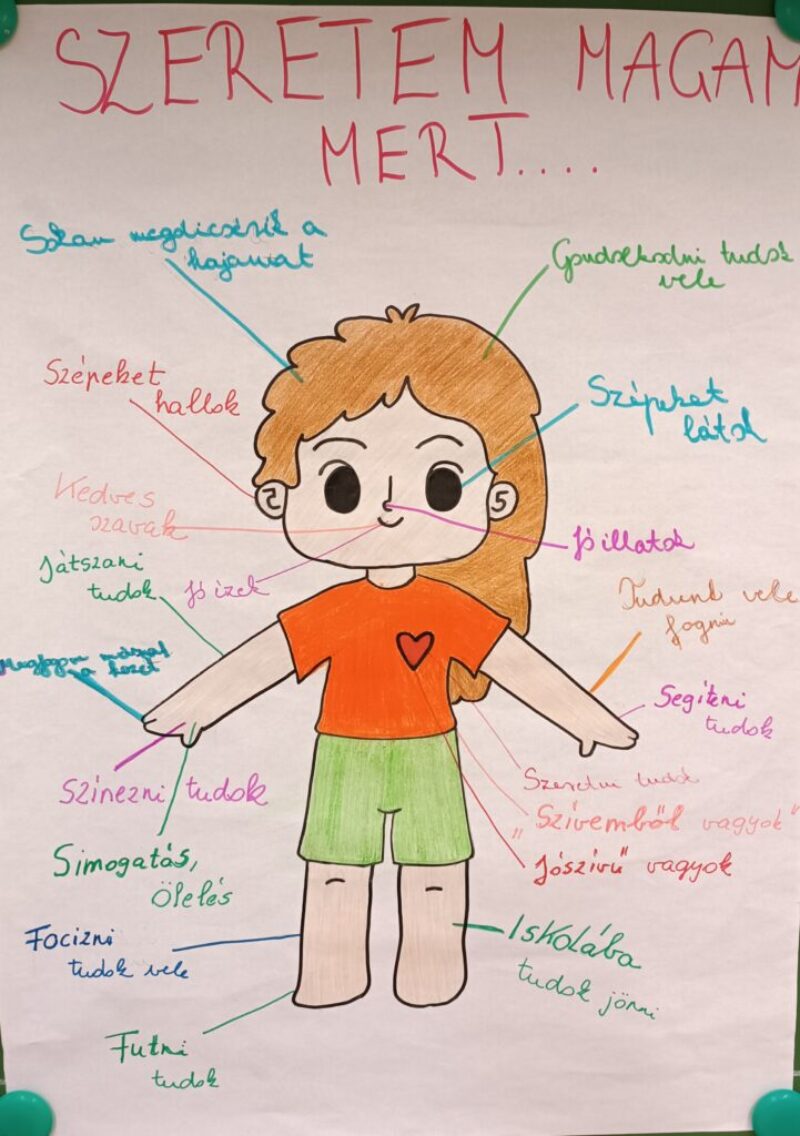 SZERETEM MAGAM
MERT....
Sokan megdicsérik a
hajamat
Gondolkodni tudok
vele
Szépeket
hallok
Szépeket
látok
Kedves
szavak
Jó illatok
Játszani
tudok
Jó izek
Tudunk vele
fogni
Megfogom mások
a kezét
Segíteni
tudok
Színezni tudok
Szeretni tudok
"Szívemből vagyok"
Jószívű vagyok
Simogatás,
Ölelés
Focizni
tudok vele
Iskolába
tudok jönni
Futni
tudok